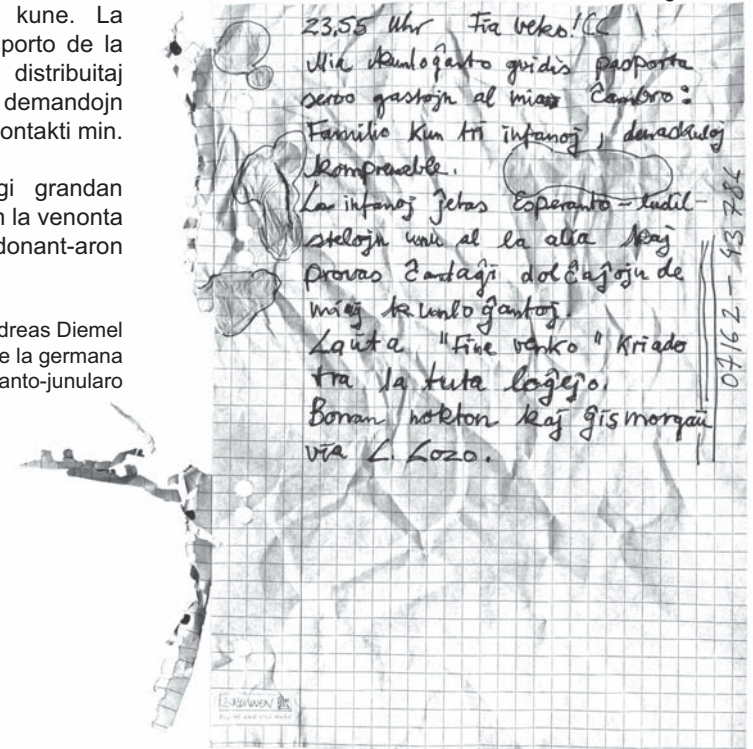 kune. La
porto de la
distribuitaj
demandojn
ontakti min.
gi grandan
n la venonta
donant-aron
dreas Diemel
e la germana
anto-junularo
23,55 Uhr Fia veko!
Mia kunloĝanto gvidis pasporta
servo gastojn al mia ĉambro:
Familio kun tri infanoj, denaskuloj
komprenable.
La infanoj ĵetas Esperanto-ludil-
stelojn unu al la alia kaj
provas ĉantaĝi dolĉaĵojn de
miaj kunloĝantoj.
Laŭta "Fine venko" Kriado
tra la tuta loĝejo.
Bonan nokton kaj ĝis morgaŭ
via L. Lozo.
07162-43784